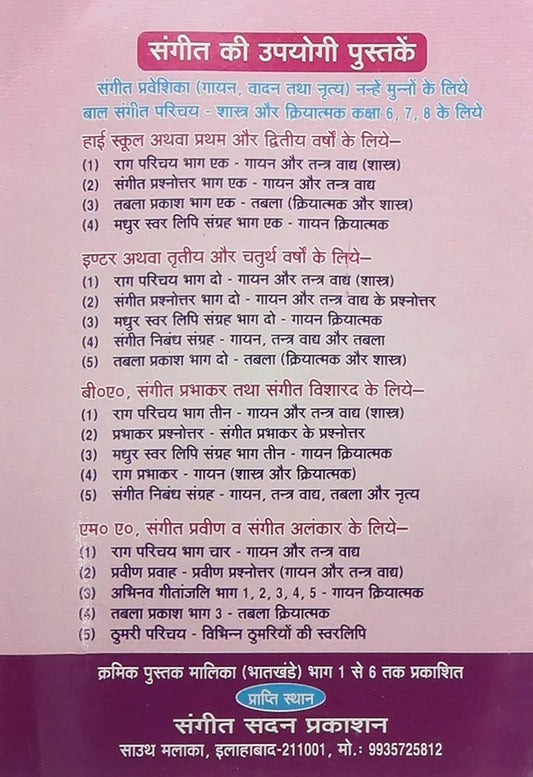 संगीत की उपयोगी पुस्तकें
संगीत प्रवेशिका (गायन, वादन तथा नृत्य) नन्हें मुन्नों के लिये
बाल संगीत परिचय - शास्त्र और क्रियात्मक कक्षा 6, 7, 8 के लिये
हाई स्कूल अथवा प्रथम और द्वितीय वर्षों के लिये–
(1) राग परिचय भाग एक - गायन और तन्त्र वाद्य (शास्त्र)
(2) संगीत प्रश्नोत्तर भाग एक - गायन और तन्त्र वाद्य
(3) तबला प्रकाश भाग एक - तबला (क्रियात्मक और शास्त्र)
(4) मधुर स्वर लिपि संग्रह भाग एक - गायन क्रियात्मक
इण्टर अथवा तृतीय और चतुर्थ वर्षों के लिये–
(1) राग परिचय भाग दो - गायन और तन्त्र वाद्य (शास्त्र)
(2) संगीत प्रश्नोत्तर भाग दो - गायन और तन्त्र वाद्य के प्रश्नोत्तर
(3) मधुर स्वर लिपि संग्रह भाग दो - गायन क्रियात्मक
(4) संगीत निबंध संग्रह - गायन, तन्त्र वाद्य और तबला
(5) तबला प्रकाश भाग दो - तबला (क्रियात्मक और शास्त्र)
बी०ए०, संगीत प्रभाकर तथा संगीत विशारद के लिये–
(1) राग परिचय भाग तीन - गायन और तन्त्र वाद्य (शास्त्र)
(2) प्रभाकर प्रश्नोत्तर - संगीत प्रभाकर के प्रश्नोत्तर
(3) मधुर स्वर लिपि संग्रह भाग तीन - गायन क्रियात्मक
(4) राग प्रभाकर - गायन (शास्त्र और क्रियात्मक)
(5) संगीत निबंध संग्रह - गायन, तन्त्र वाद्य, तबला और नृत्य
एम० ए०, संगीत प्रवीण व संगीत अलंकार के लिये–
(1) राग परिचय भाग चार - गायन और तन्त्र वाद्य
(2) प्रवीण प्रवाह - प्रवीण प्रश्नोत्तर (गायन और तन्त्र वाद्य)
(3) अभिनव गीतांजलि भाग 1, 2, 3, 4, 5 - गायन क्रियात्मक
(4) तबला प्रकाश भाग 3 - तबला क्रियात्मक
(5) ठुमरी परिचय - विभिन्न ठुमरियों की स्वरलिपि
क्रमिक पुस्तक मालिका (भातखंडे) भाग 1 से 6 तक प्रकाशित
प्राप्ति स्थान
संगीत सदन प्रकाशन
साउथ मलाका, इलाहाबाद-211001, मो.: 9935725812